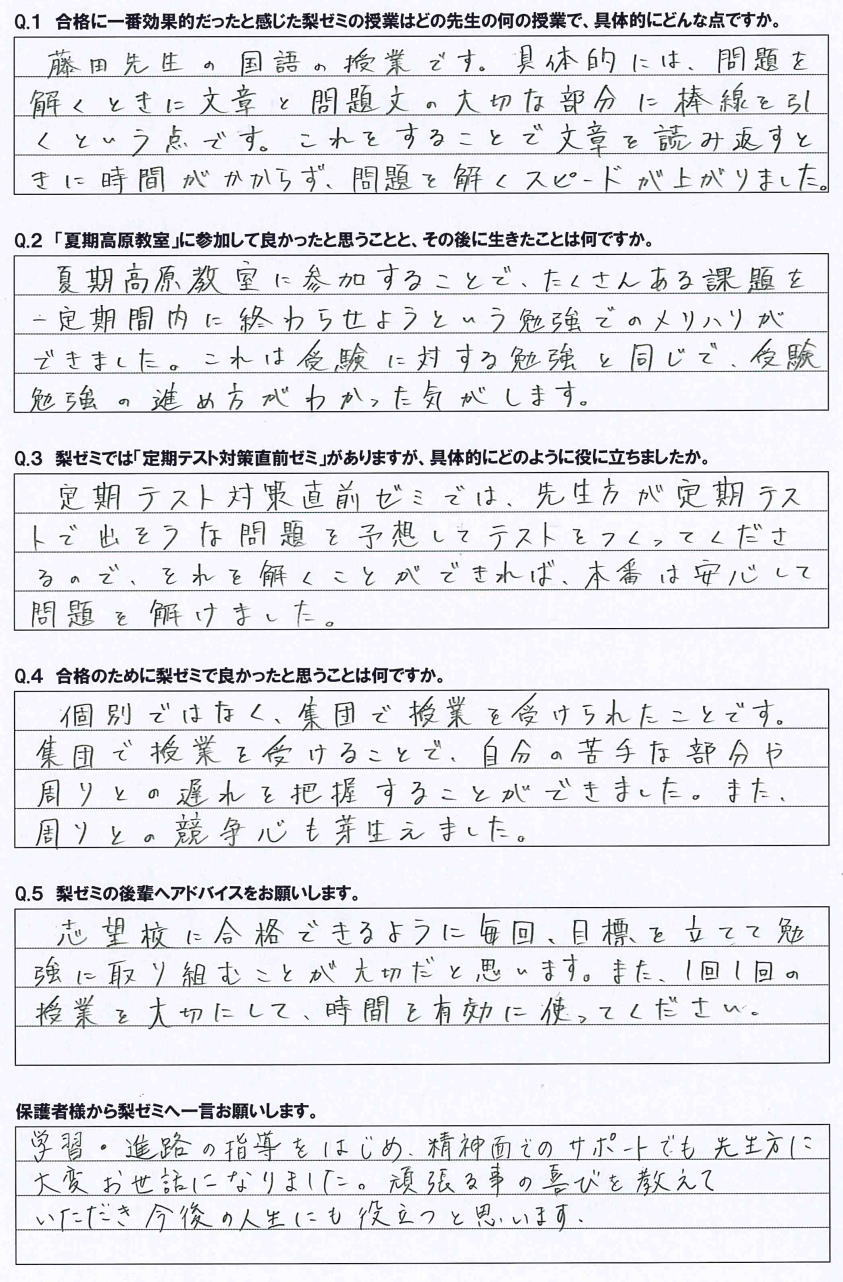 Q.1 合格に一番効果的だったと感じた梨ゼミの授業はどの先生の何の授業で、具体的にどんな点ですか。
藤田先生の国語の授業です。具体的には、問題を
解くときに文章と問題文の大切な部分に棒線を引
くという点です。これをすることで文章を読み返すと
きに時間がかからず、問題を解くスピードが上がりました。
Q.2 「夏期高原教室」に参加して良かったと思うことと、その後に生きたことは何ですか。
夏期高原教室に参加することで、たくさんある課題を
一定期間内に終わらせようという勉強でのメリハリが
できました。これは受験に対する勉強と同じで、受験
勉強の進め方がわかった気がします。
Q.3 梨ゼミでは「定期テスト対策直前ゼミ」がありますが、具体的にどのように役に立ちましたか。
定期テスト対策直前ゼミでは、先生方が定期テス
トで出そうな問題を予想してテストをつくってくださ
るので、それを解くことができれば、本番は安心して
問題を解けました。
Q.4 合格のために梨ゼミで良かったと思うことは何ですか。
個別ではなく、集団で授業を受けられたことです。
集団で授業を受けることで、自分の苦手な部分や
周りとの遅れを把握することができました。また、
周りとの競争心も芽生えました。
Q.5 梨ゼミの後輩へアドバイスをお願いします。
志望校に合格できるように毎回、目標を立てて勉
強に取り組むことが大切だと思います。また、1回1回の
授業を大切にして、時間を有効に使ってください。
保護者様から梨ゼミへ一言お願いします。
学習・進路の指導をはじめ、精神面でのサポートでも先生方に
大変お世話になりました。頑張る事の喜びを教えて
いただき今後の人生にも役立つと思います。